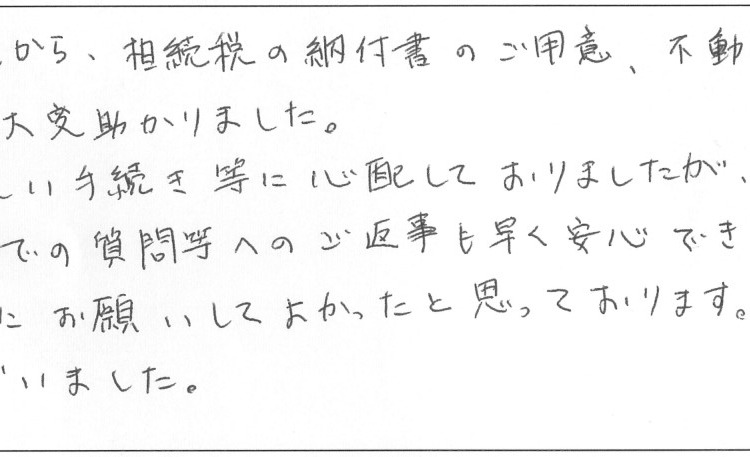 から、相続税の納付書のご用意、不動
大変助かりました。
しい手続き等に心配しておりましたが、
での質問等へのご返事も早く安心でき
にお願いしてよかったと思っております。
いました。